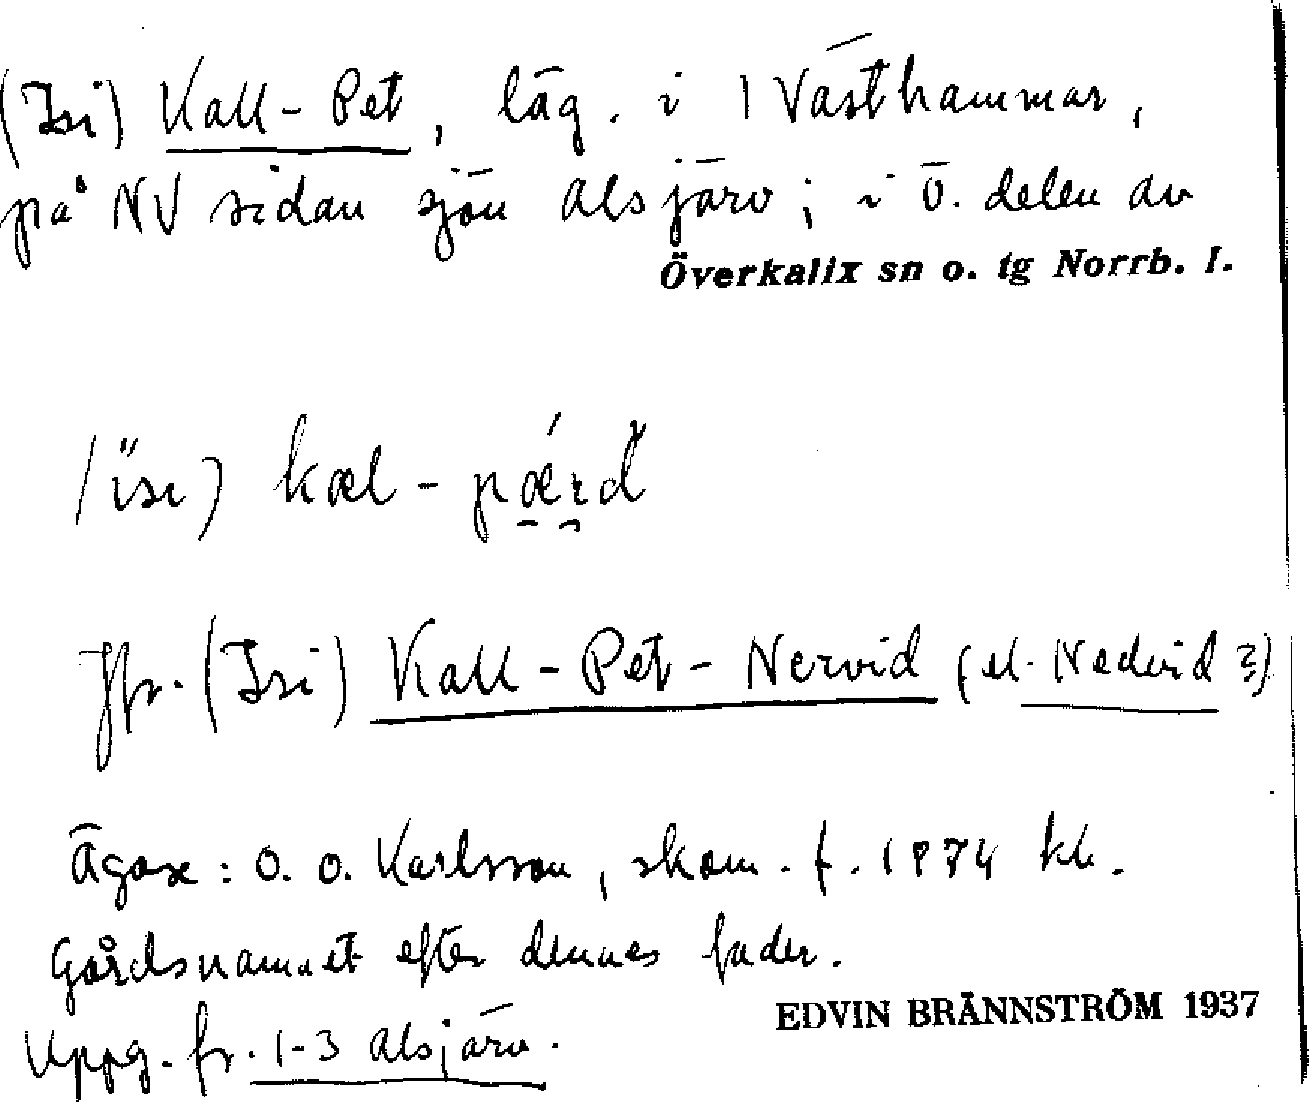 (Isi) Kall-Pet, läg. i 1 Västhammar,
på NV sidan sjön Alsjärv; i ö. delen av
Överkalix sn o. tg Norrb. l.
kæl-pǽrd
Jfr. (Isi) Kall-Pet-Nervid (el. Nedvid ?)
Ägare: O. O. Karlsson, skom. f. 1874 kk.
Gårdsnamnet efter dennes fader.
EDVIN BRÄNNSTRÖM 1937
Uppg. fr. 1-3 Alsjärv.